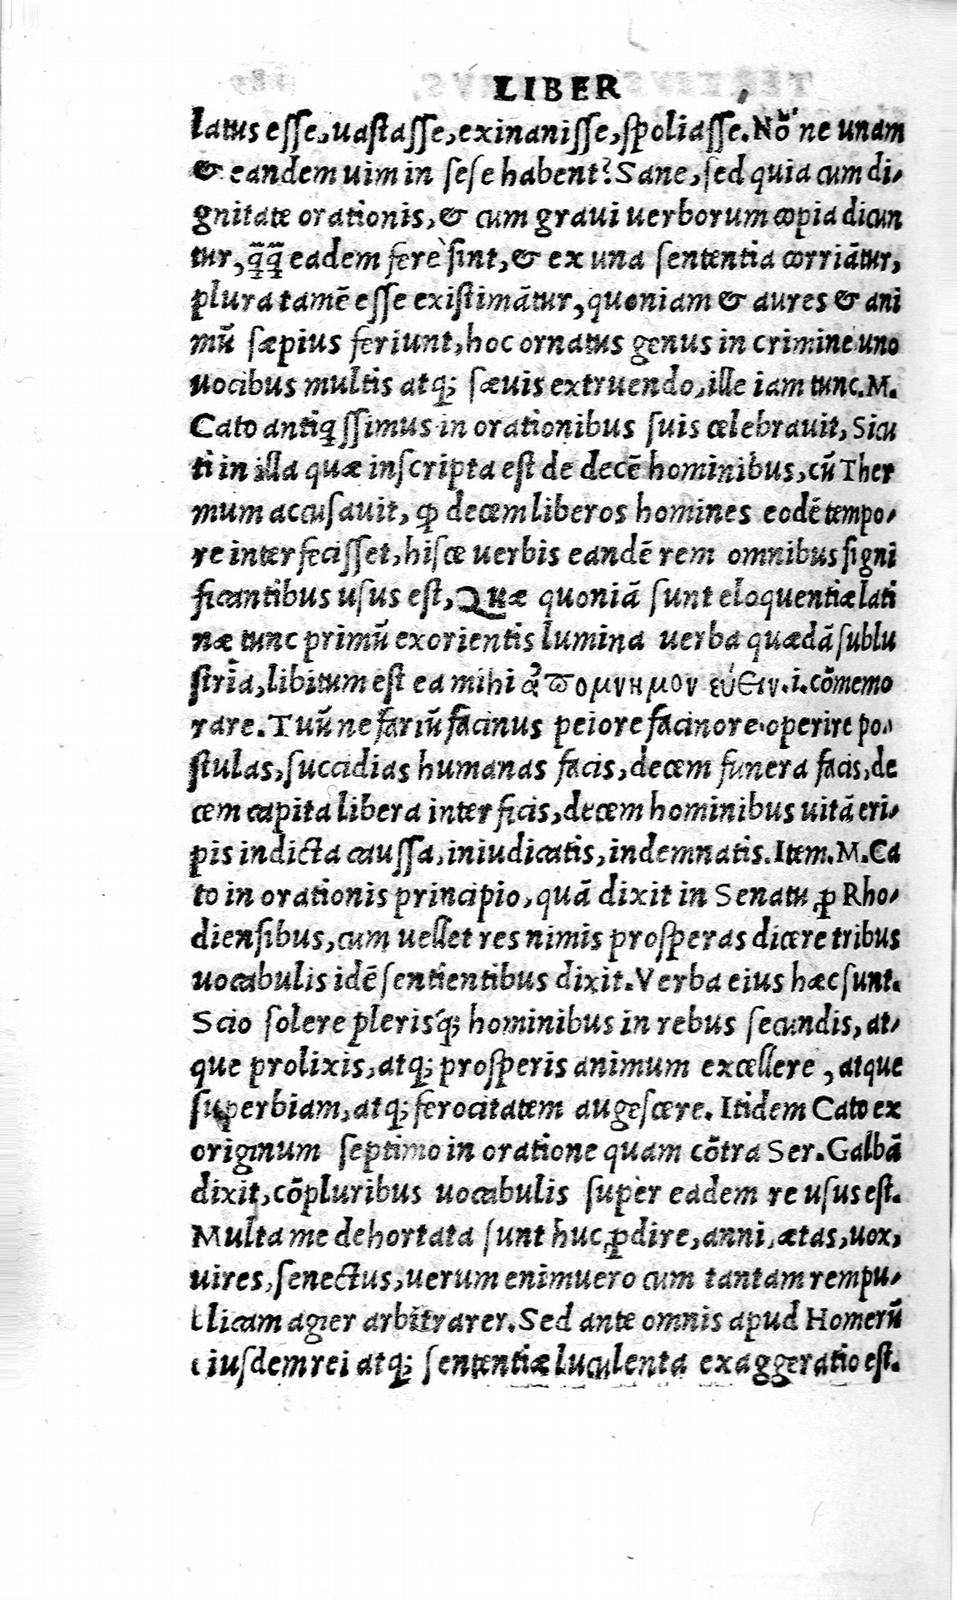 LIBER
latus esse, uastasse, exinanisse, spoliasse. Nõ ne unam
& eandem uim in sese habent? Sane, sed quia cum di-
gnitate orationis, & cum graui uerborum copia dicun
tur, q̃q̃ eadem ferè sint, & ex una sententia corriãtur,
plura tamẽ esse existimãtur, quoniam & aures & ani
mũ sæpius feriunt, hoc ornatus genus in crimine uno
uocibus multis atq; sæuis extruendo, ille iam tunc. M.
Cato antiqssimus in orationibus suis celebrauit, Sicu
ti in illa quæ inscripta est de decẽ hominibus, cũ Ther
mum accusauit, ꝙ decem liberos homines eodẽ tempo-
re interfecisset, hisce uerbis eandẽ rem omnibus signi
ficantibus usus est, Quæ quoniã sunt eloquentiæ lati
næ tunc primũ exorientis lumina uerba quædã sublu
stria, libitum est ea mihi ἀπομνημον εύειν. i. cõmemo
rare. Tuũ nefariũ facinus peiore facinore operire po-
stulas, succidias humanas facis, decem funera facis, de
cem capita libera interficis, decem hominibus uitã eri-
pis indicta caussa, iniudicatis, indemnatis. Item. M. Ca
to in orationis principio, quã dixit in Senatu ꝓ Rho-
diensibus, cum uellet res nimis prosperas dicere tribus
uocabulis idẽ sentientibus dixit. Verba eius hæc sunt.
Scio solere plerisq; hominibus in rebus secundis, at-
que prolixis, atq; prosperis animum excellere, atque
superbiam, atq; ferocitatem augescere. Itidem Cato ex
originum septimo in oratione quam cõtra Ser. Galbã
dixit, cõpluribus uocabulis super eadem re usus est.
Multa me dehortata sunt huc ꝓdire, anni, ætas, uox,
uires, senectus, uerum enimuero cum tantam rempu-
blicam agier arbitrarer. Sed ante omnis apud Homerũ
eiusdem rei atq; sententiæ luculenta exaggeratio est.